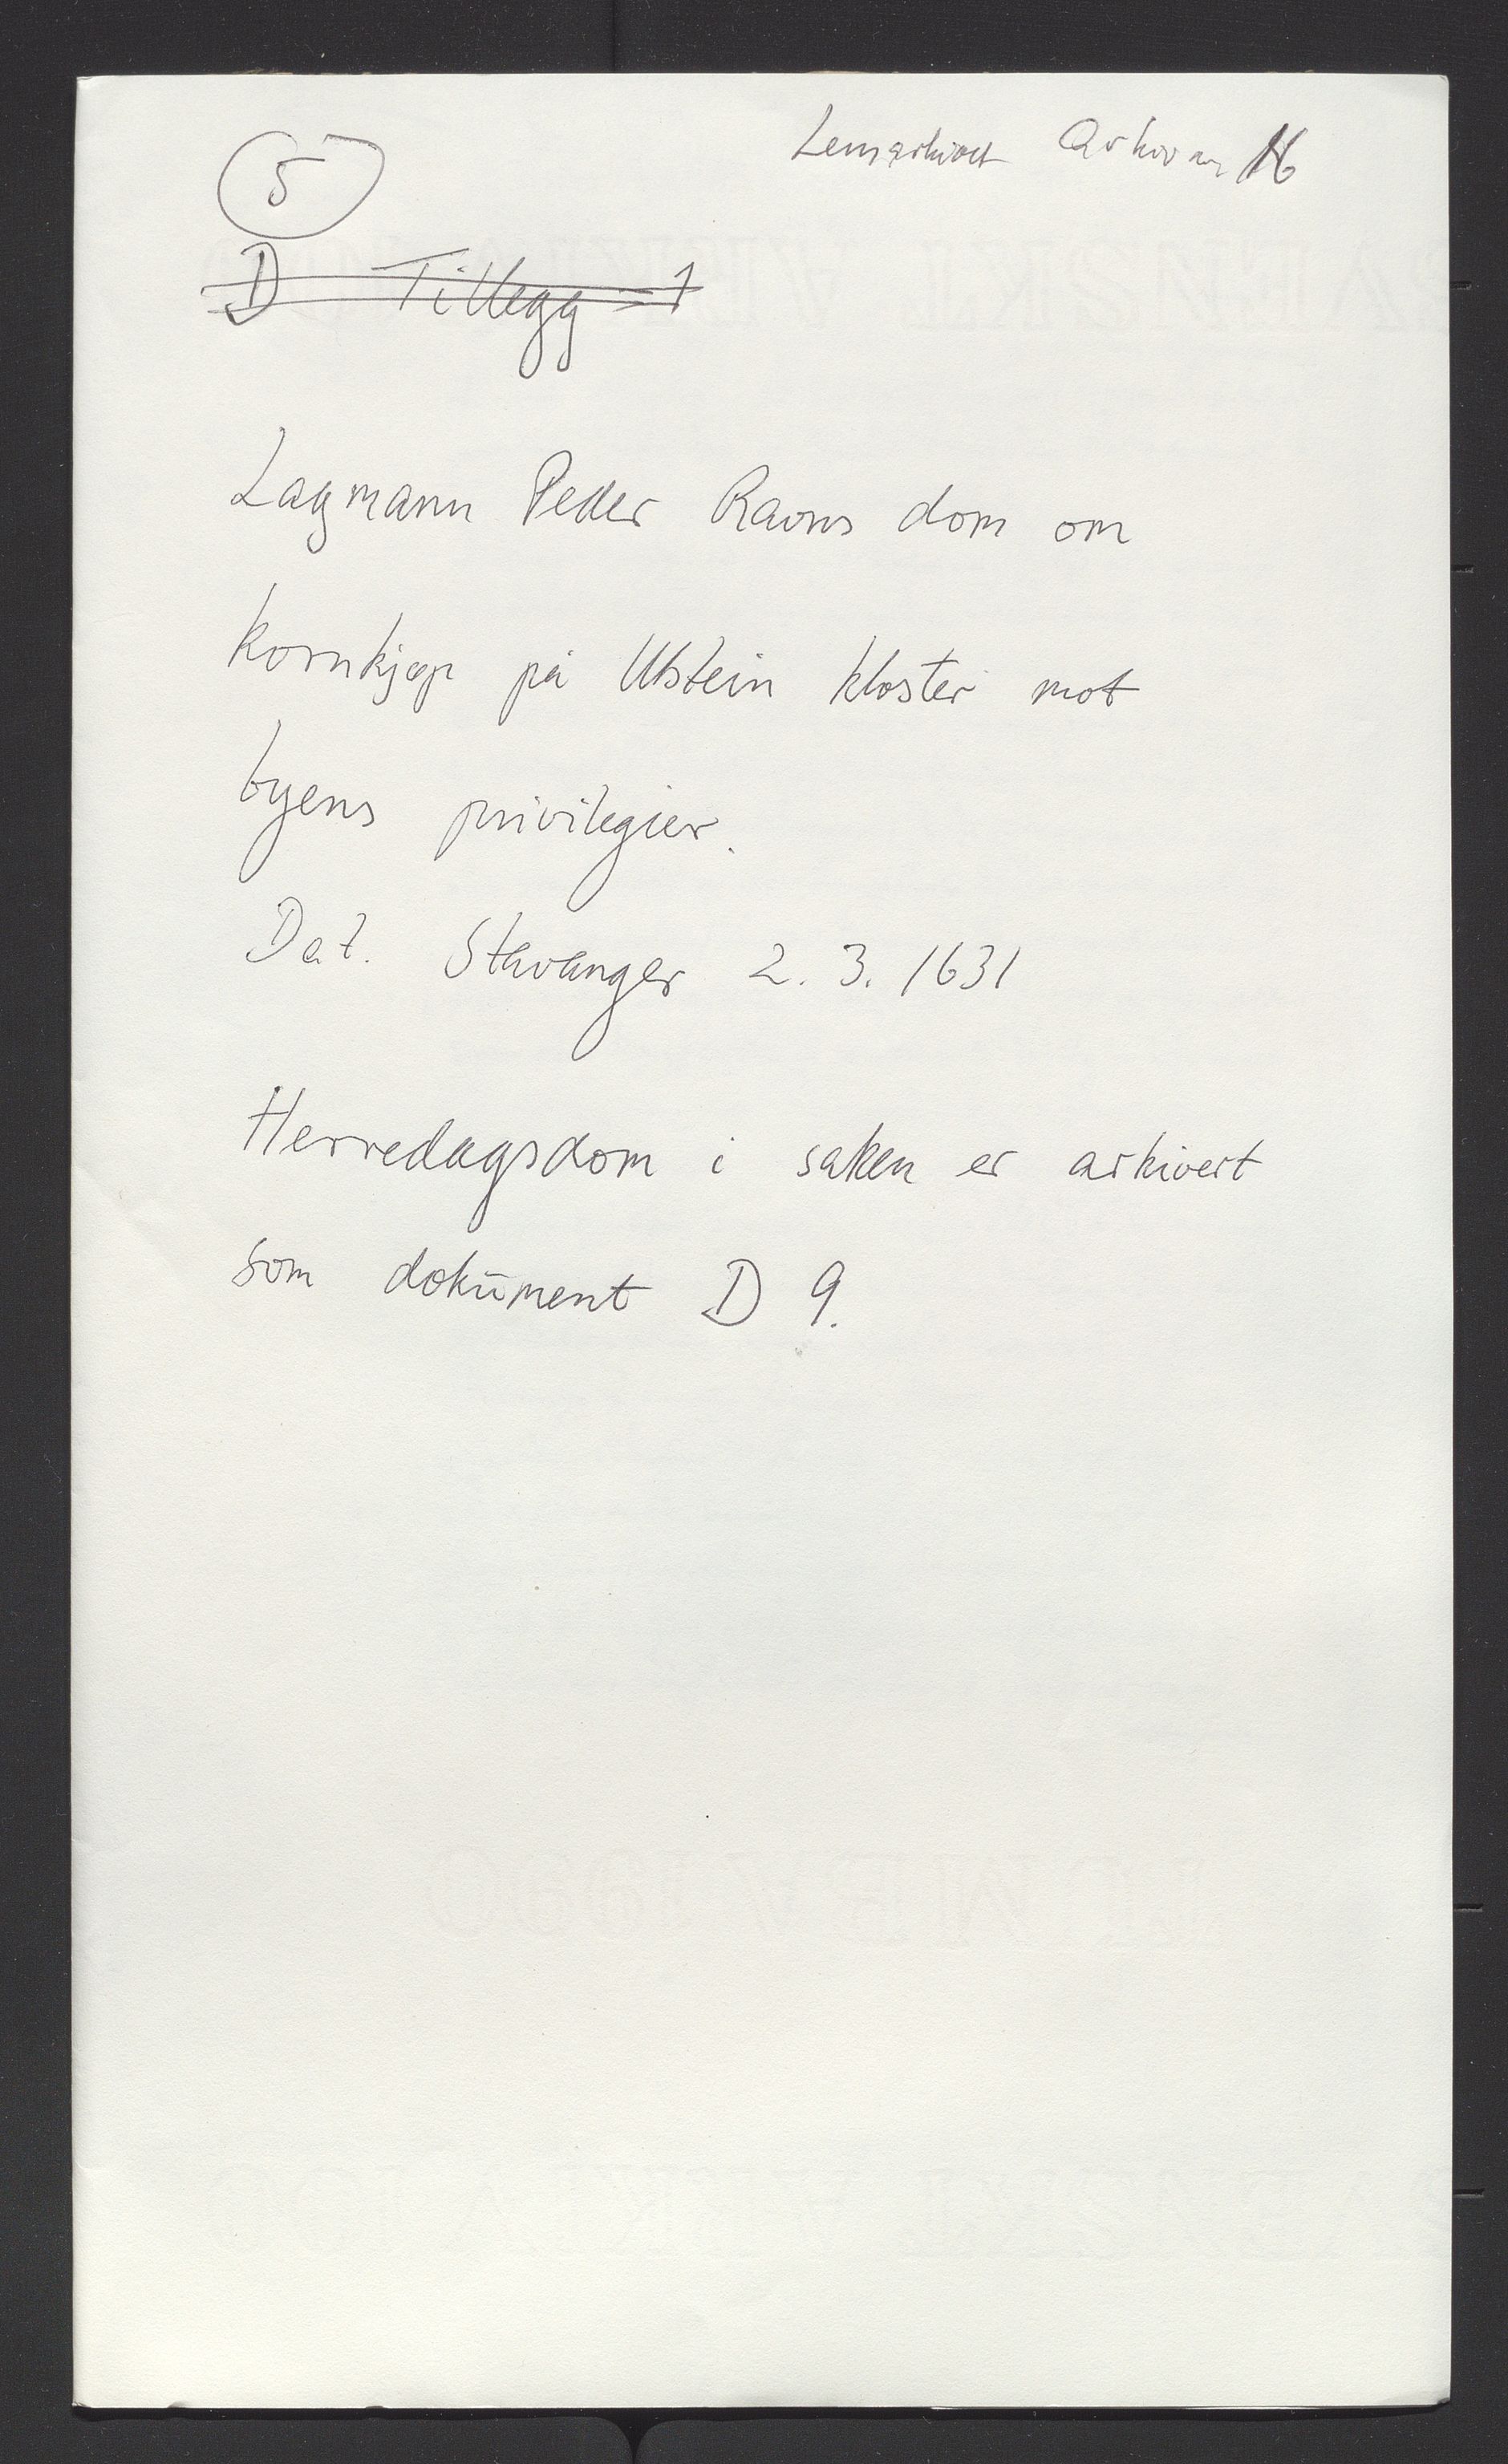 Lensarkivet Arkivnr 16
5
D Tillegg 1
Lagmann Peder Ravns dom om
kornkjøp på Utstein kloster mot
byens privilegier.
Dat. Stavanger 2. 3. 1631
Herredagsdom i saken er arkivert
som dokument D 9.